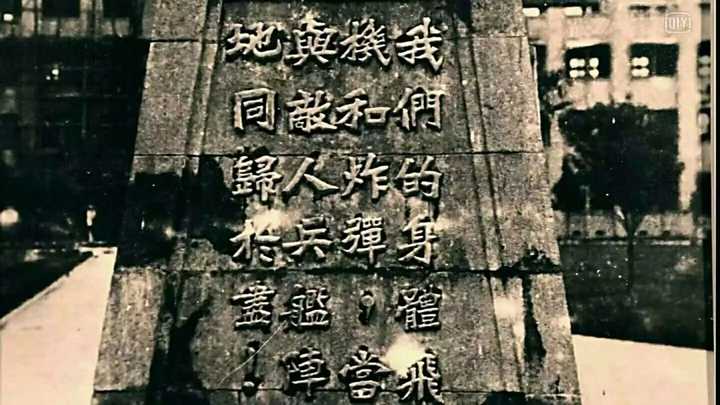 我們的身體飛
機和炸彈,當
與敵人兵艦陣
地同歸於盡!
iQIYI